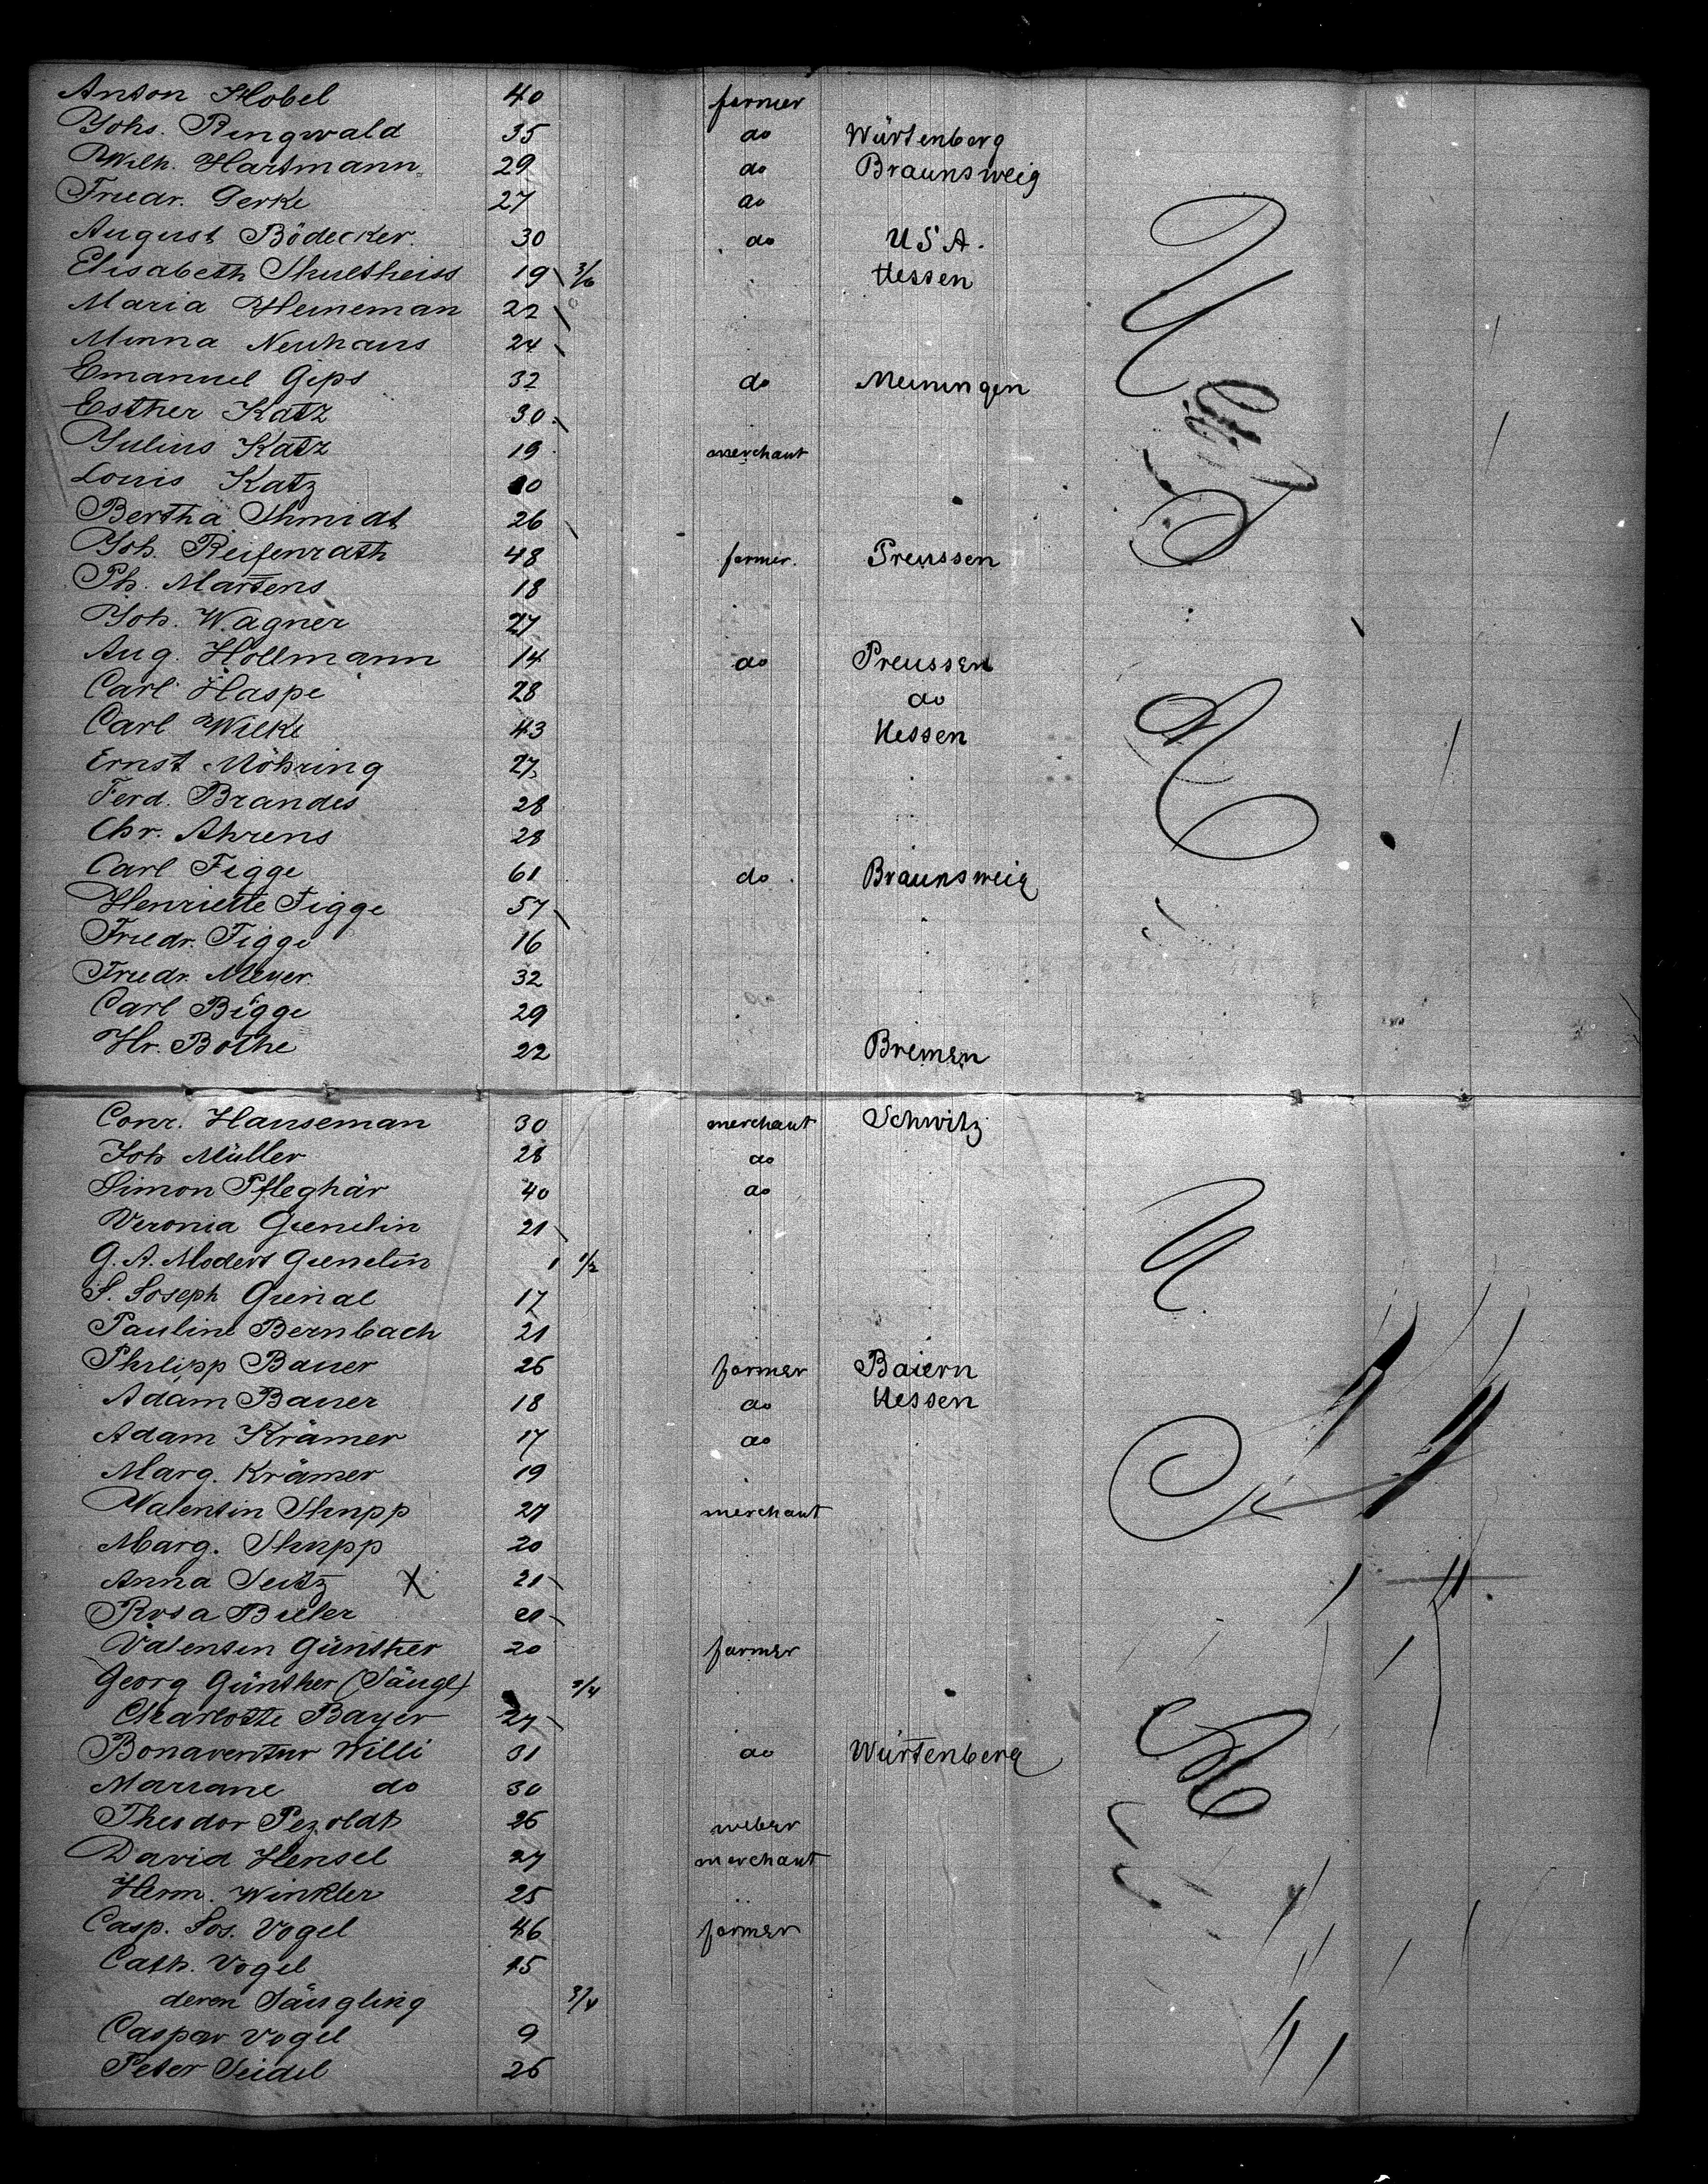 Anton Hobel 40 farmer
Johs. Ringwald 35 do Würtenberg
Wilh. Hartmann 29 do Braunsweig
Friedr. Gerke 27 do
August Bödecker. 30 do USA.
Elisabeth Shultheiss 19 Hessen
Maria Heineman 22
Minna Neuhaus 24
Emanuel Gips 32 do Meiningen
Esther Katz 30
Julius Katz 19 merchant
Louis Katz
Bertha Shmidt 26
Joh. Reifenrath 48 farmer. Preussen
Ph. Martens 18
Joh. Wagner 27
Aug. Hollmann 14 do Preussen
Carl Haspe 28 do
Carl Wilke 43 Hessen
Ernst Möhring 27
Ferd. Brandes 28
Chr. Ahrens 28
Carl Figge 61 do Braunsweig
Henriette Figge 57
Friedr. Figge 16
Friedr. Meyer 32
Carl Bigge 29
Hr. Bothe 22 Bremen
Conr. Hanseman 30 merchant Schwitz
Joh Müller 28 do
Simon Pfleghär 40 do
Veronia 21
G. A. 1 1/2
S. Joseph 17
Pauline Bernbach 21
Philipp Bauer 26 farmer Baiern
Adam Bauer 18 do Hessen
Adam Krämer 17 do
Marg. Krämer 19
Valentin Shupp 27 merchant
Marg. Shupp 20
Anna Seitz X 21
Rosa Bieler 21
Valentin Günther 20 farmer
Georg Günther (Säugl) 3/4
Charlotte Bayer 27
Bonaventur Willi 31 do Würtenberg
Mariane do 30
Theodor Pezoldt 26 weber
David Hensel 27 merchant
Herm. Winkler 25
Casp. Jos. Vogel 46 farmer
Cath. Vogel
deren Säugling 3/4
Caspar Vogel 9
Peter Seidel 26